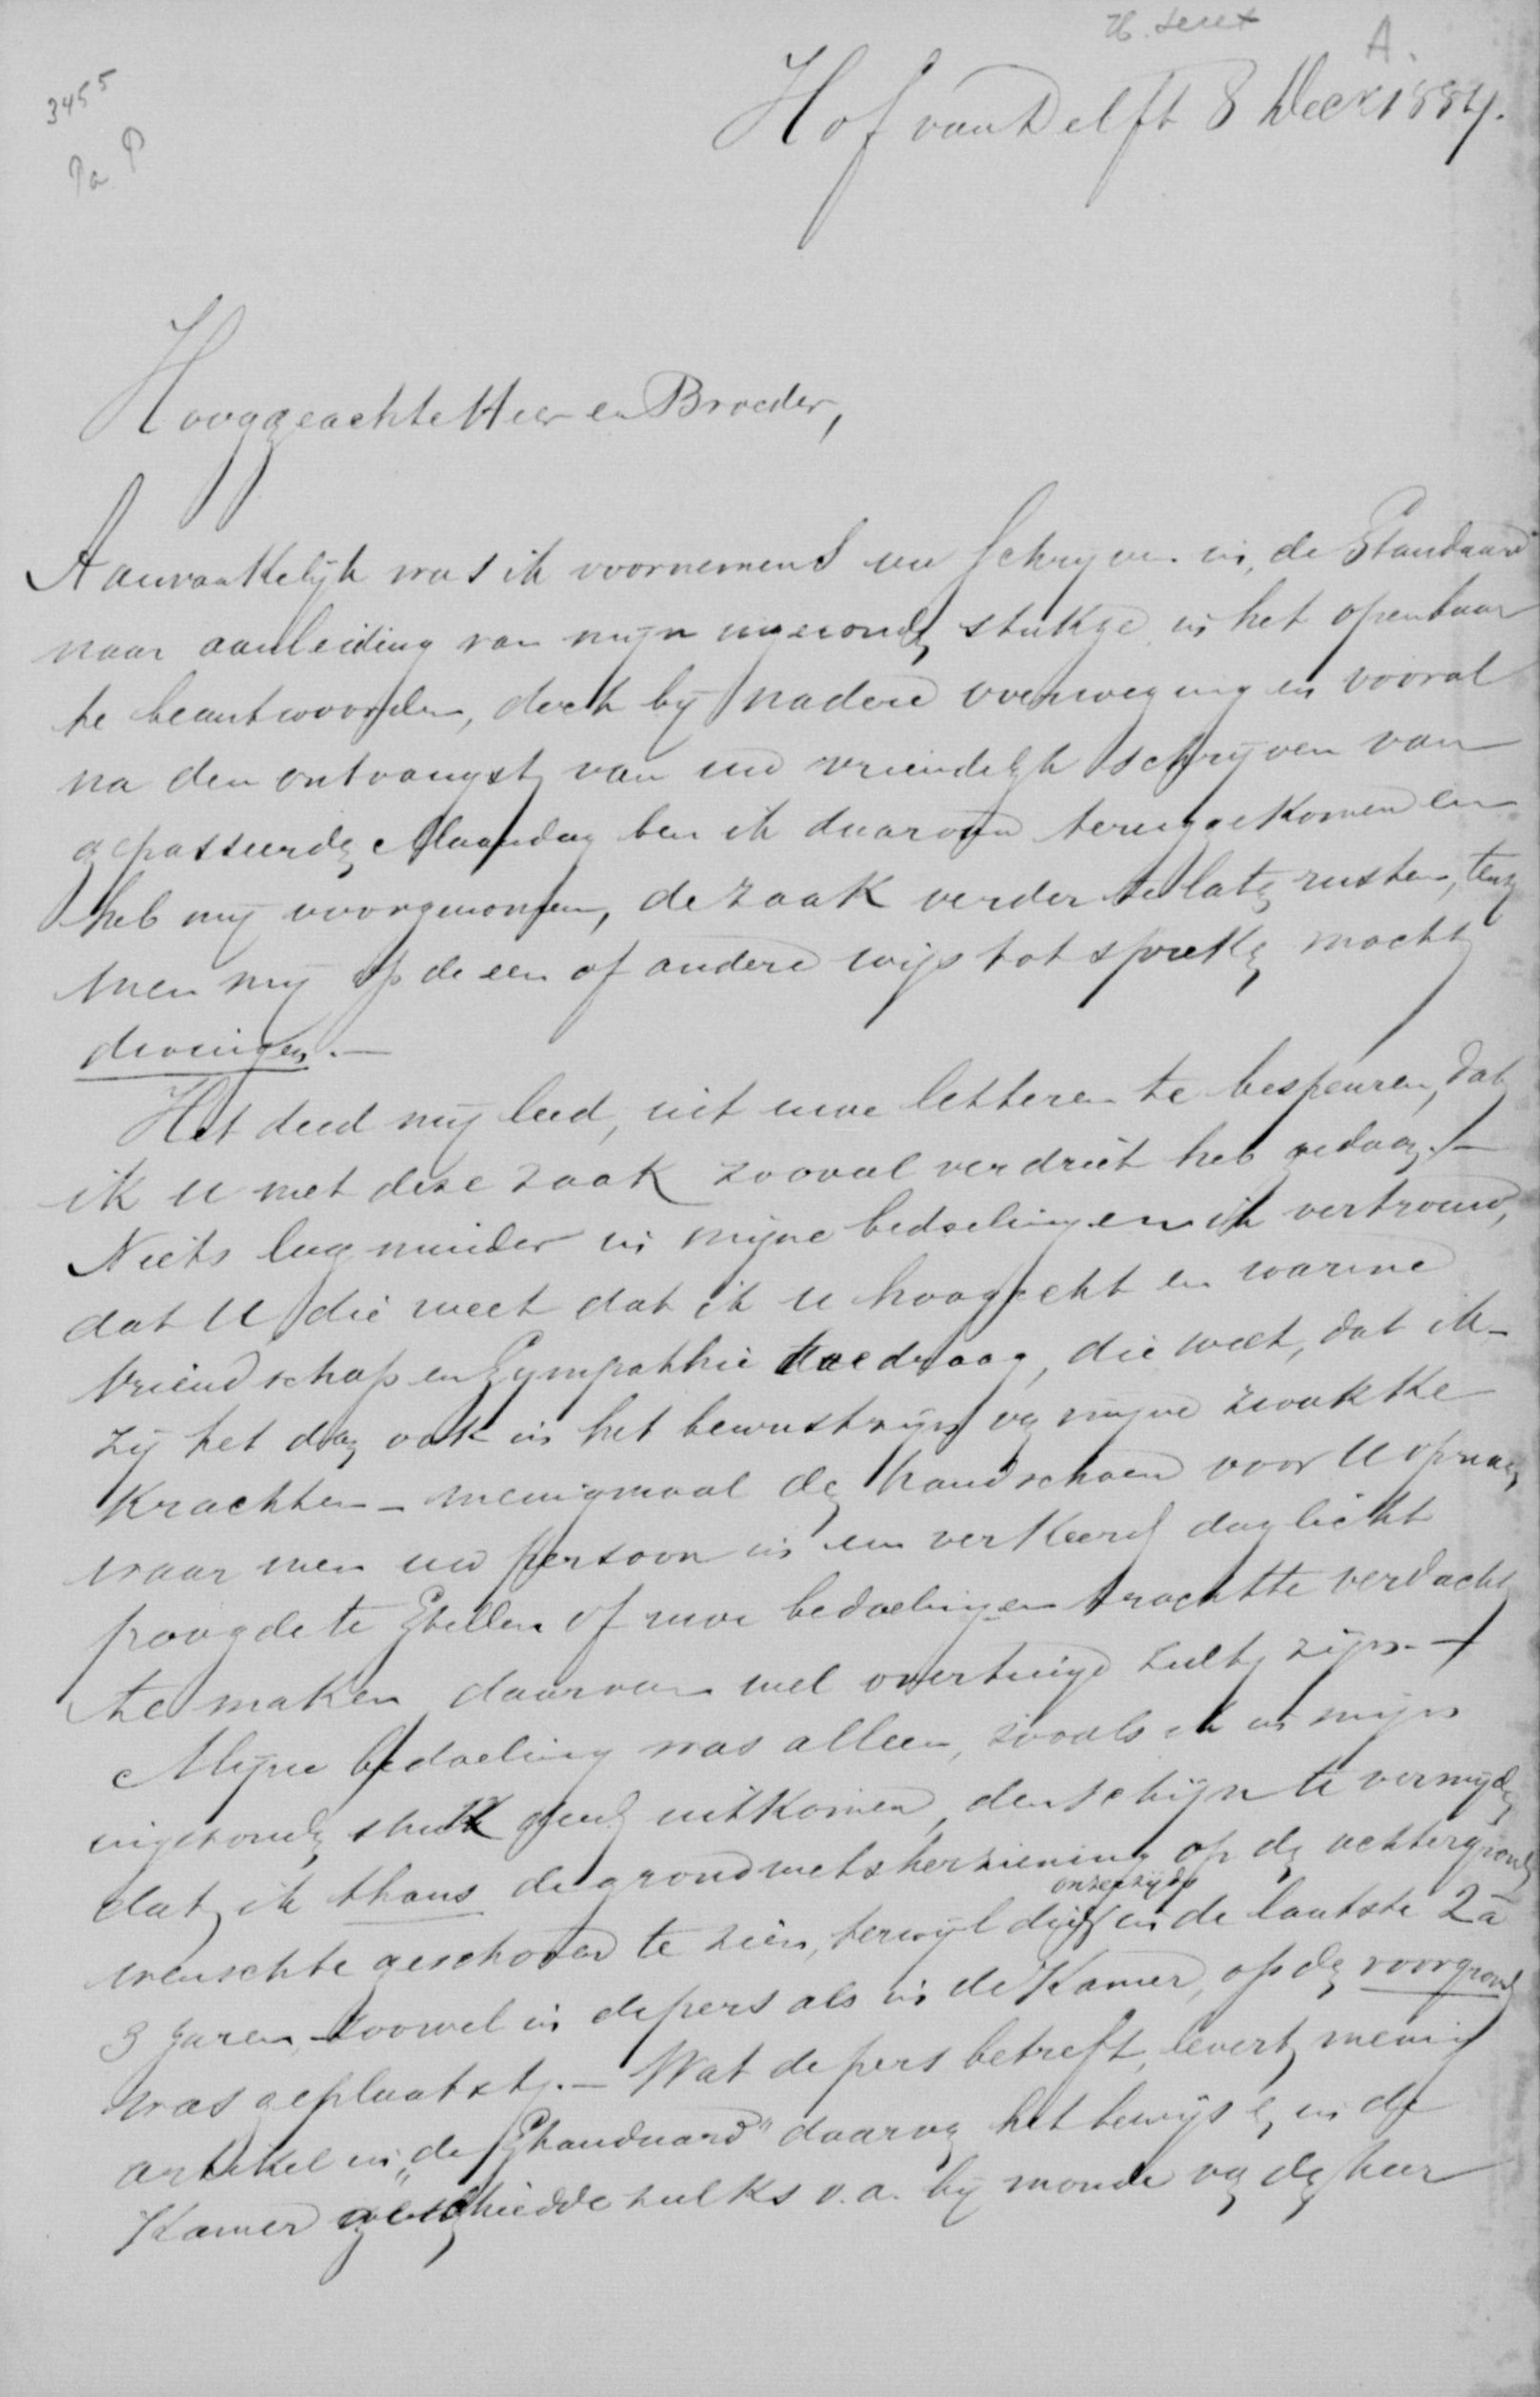 A.
3455
Pa P
Hof van Delft 8 Decr 1884.
Hooggeachte Heer en Broeder,
Aanvankelijk was ik voornemens uw schrijven in „de Standaard"
naar aanleiding van mijn ingezonden stukje in het openbaar
te beantwoorden, doch bij nadere overweging en vooral
na den ontvangst van uw vriendelijk schrijven van
gepasseerden Maandag ben ik daarvan teruggekomen en
heb mij voorgenomen, de zaak verder te laten rusten, tenzij
men mij op de een of andere wijs tot spreken mocht
dwingen.—
Het deed mij leed, uit uwe letteren te bespeuren, dat
ik u met deze zaak zooveel verdriet heb gedaan.—
Niets lag minder in mijne bedoeling en ik vertrouw,
dat U die weet dat ik u hoogacht en warme
vriendschap en sympathie toedraag, die weet, dat ik –
zij het dan ook in het bewustzijn van mijne zwakke
krachten – menigmaal den handschoen voor U opnam,
waar men uw persoon in een verkeerd daglicht
poogde te stellen of uwe bedoelingen trachtte verdacht
te maken daarvan wel overtuigd zult zijn.—
Mijne bedoeling was alleen, zooals ik in mijn
ingezonden stuk deed uitkomen, den schijn te vermijden
dat ik thans de grondwetsherziening op den achtergrond
onzerzijds
wenschte geschoven te zien, terwijl die in de laatste 2 à
3 jaren, zoowel in de pers als in de Kamer, op den voorgrond
was geplaatst.— Wat de pers betreft, levert menig
artikel in „de Standaard" daarvan het bewijs en in de
Kamer geschiedde zulks o.a. bij monde van den heer